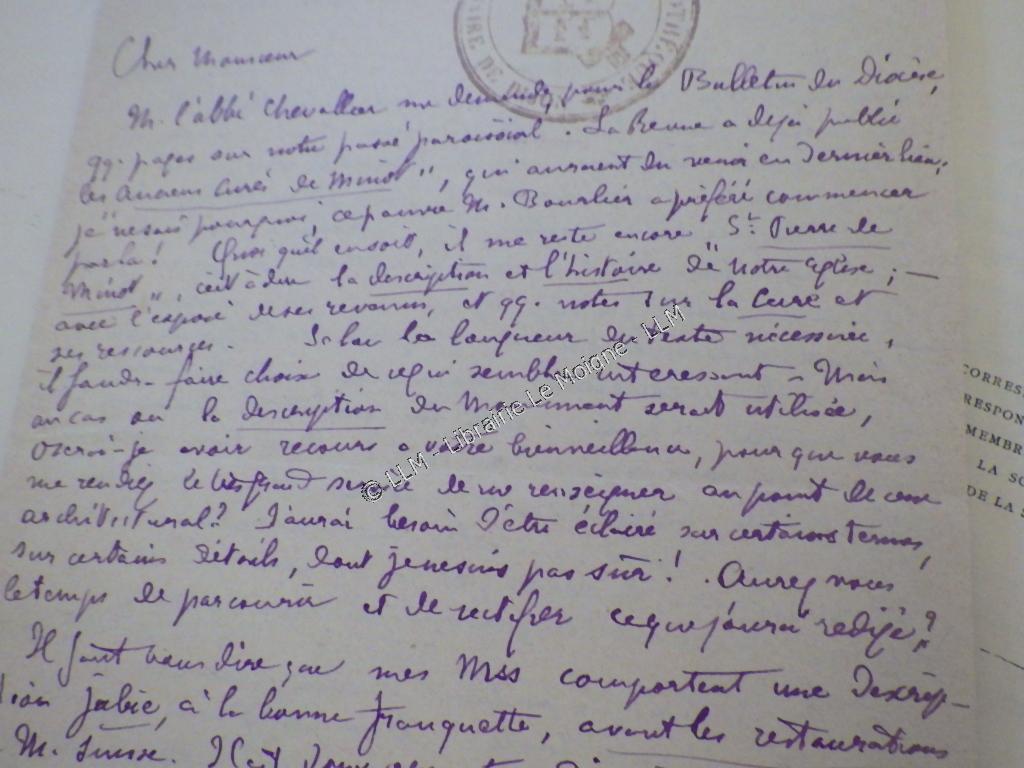 Cher Monsieur
M. l'abbé Chevallier me demande, pour le Bulletin du Diocèse,
qq. pages sur notre passé paroissial. La Revue a déjà publié
les "Anciens Curés de Minot", qui auraient du venir en dernier lieu;
je ne sais pourquoi, ce pauvre M. Bourlier a préféré commencer
par là! Quoi qu'il en soit, il me reste encore "St. Pierre de
Minot", c'est à dire la description et l'histoire de notre Eglise; —
avec l'exposé de ses revenus, et qq. notes sur la Cure et
ses ressources. Selon la longueur du texte nécessaire,
il faudra faire choix de ce qui semble intéressant - Mais
au cas où la description du Monument serait utilisée,
oserai-je avoir recours à votre bienveillance, pour que vous
me rendiez le très grand service de me renseigner au point de vue
architectural? J'aurai besoin d'être éclairé sur certains termes,
sur certains détails, dont je ne suis pas sûr! Aurez vous
le temps de parcourir et de rectifier ce que j'aurai rédigé?
Il faut vous dire que mes Mss comportent une Descrip-
tion jabie, à la bonne franquette, avant les restaurations
M. Suisse. Il
© LLM - Librairie Le Moigne - LLM
CORRES
RESPON
MEMBR
LA SO
DE LA S